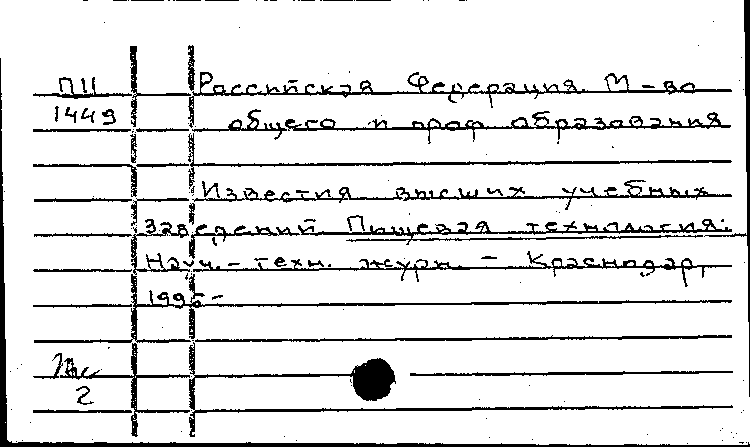 ПII Российская Федерация. М-во
1449 общего и проф образования
Известия высших учебных
заведений Пищевая технология:
Науч.-техн. журн. - Краснодар,
1995-
2